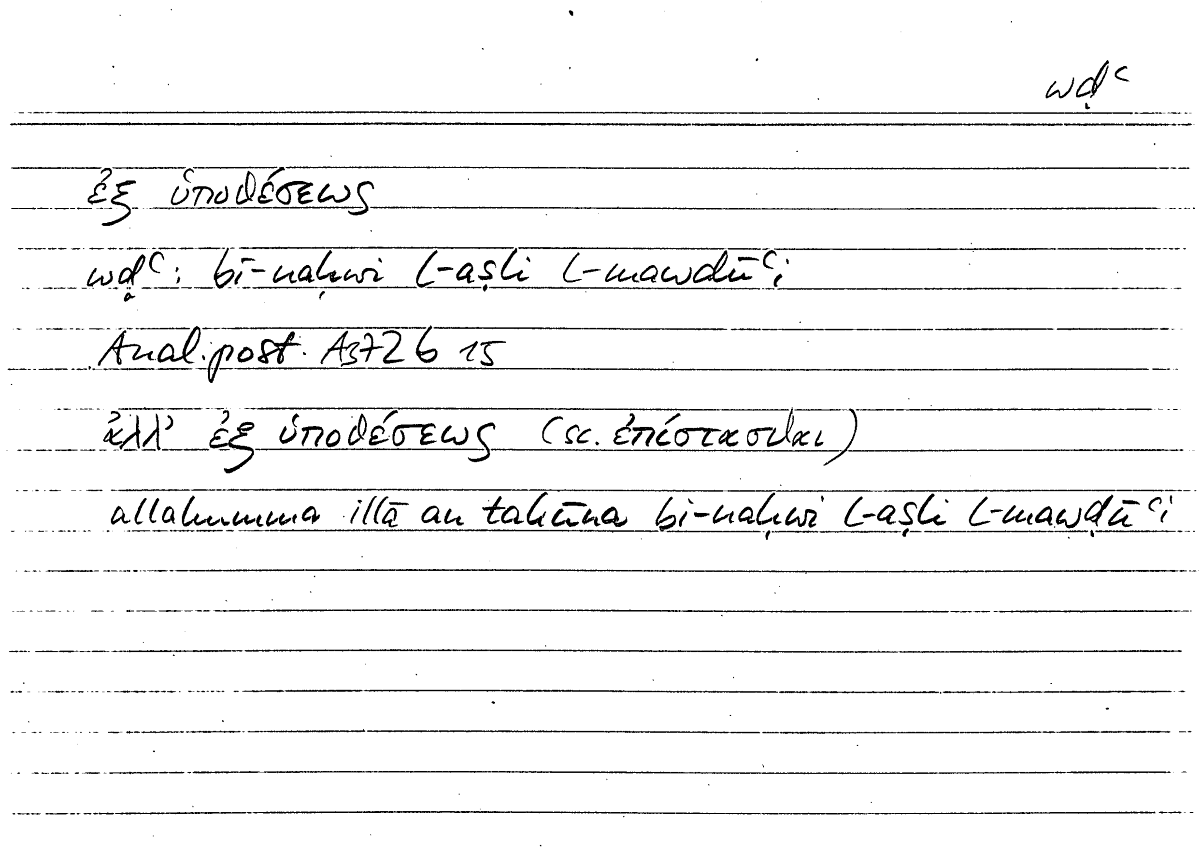 wḍʿ
ἐξ ὑποθέσεως
wḍʿ: bi-naḥwi l-aṣli l-mawdūʿi
Anal. post. A3 72 b 15
ἀλλ’ ἐξ ὑποθέσεως (sc. ἐπίστασθαι)
allahumma illā an takūna bi-naḥwi l-aṣli l-mawḍūʿi